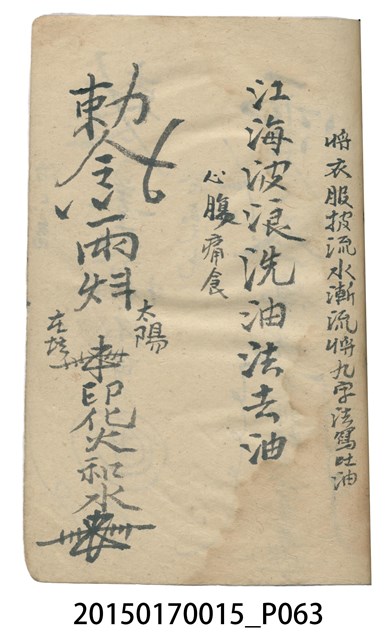 將衣服披流水漸流將九字法寫吐油
江海波浪洗油法去油
心腹痛食
勅令雨炓
太陽
在坛
印化火和水
20150170015_P063